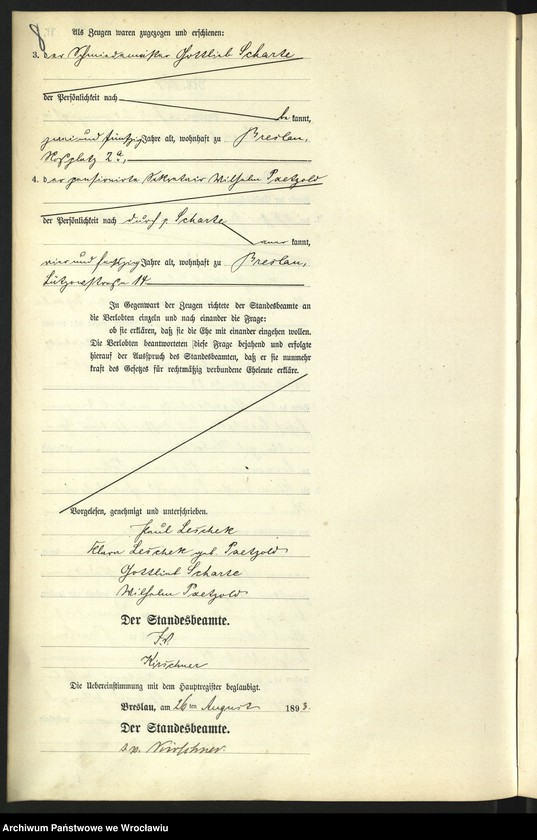 8
Als Zeugen waren zugezogen und erschienen:
3. der Schmiedemeister Gottlieb Scharte
der Persönlichkeit nach
be kannt,
zwei und fünfzig Jahre alt, wohnhaft zu Breslau,
Roßplatz 2a,
4. der pensionirte Sekretair Wilhelm Paetzold
der Persönlichkeit nach durch p. Scharte
aner kannt,
vier und Jahre alt, wohnhaft zu Breslau,
Lützowstraße 14
In Gegenwart der Zeugen richtete der Standesbeamte an
die Verlobten einzeln und nach einander die Frage:
ob sie erklären, daß sie die Ehe mit einander eingehen wollen.
Die Verlobten beantworteten diese Frage bejahend und erfolgte
hierauf der Ausspruch des Standesbeamten, daß er sie nunmehr
kraft des Gesetzes für rechtmäßig verbundene Eheleute erkläre.
Vorgelesen, genehmigt und unterschrieben.
Paul Leschek
Klara Leschek geb. Paetzold
Gottlieb Scharte
Wilhelm Paetzold
Der Standesbeamte.
Kirschner
Die Uebereinstimmung mit dem Hauptregister beglaubigt.
Breslau, am 26ten August 1893.
Der Standesbeamte.
Kirschner.
Archiwum Państwowe we Wrocławiu